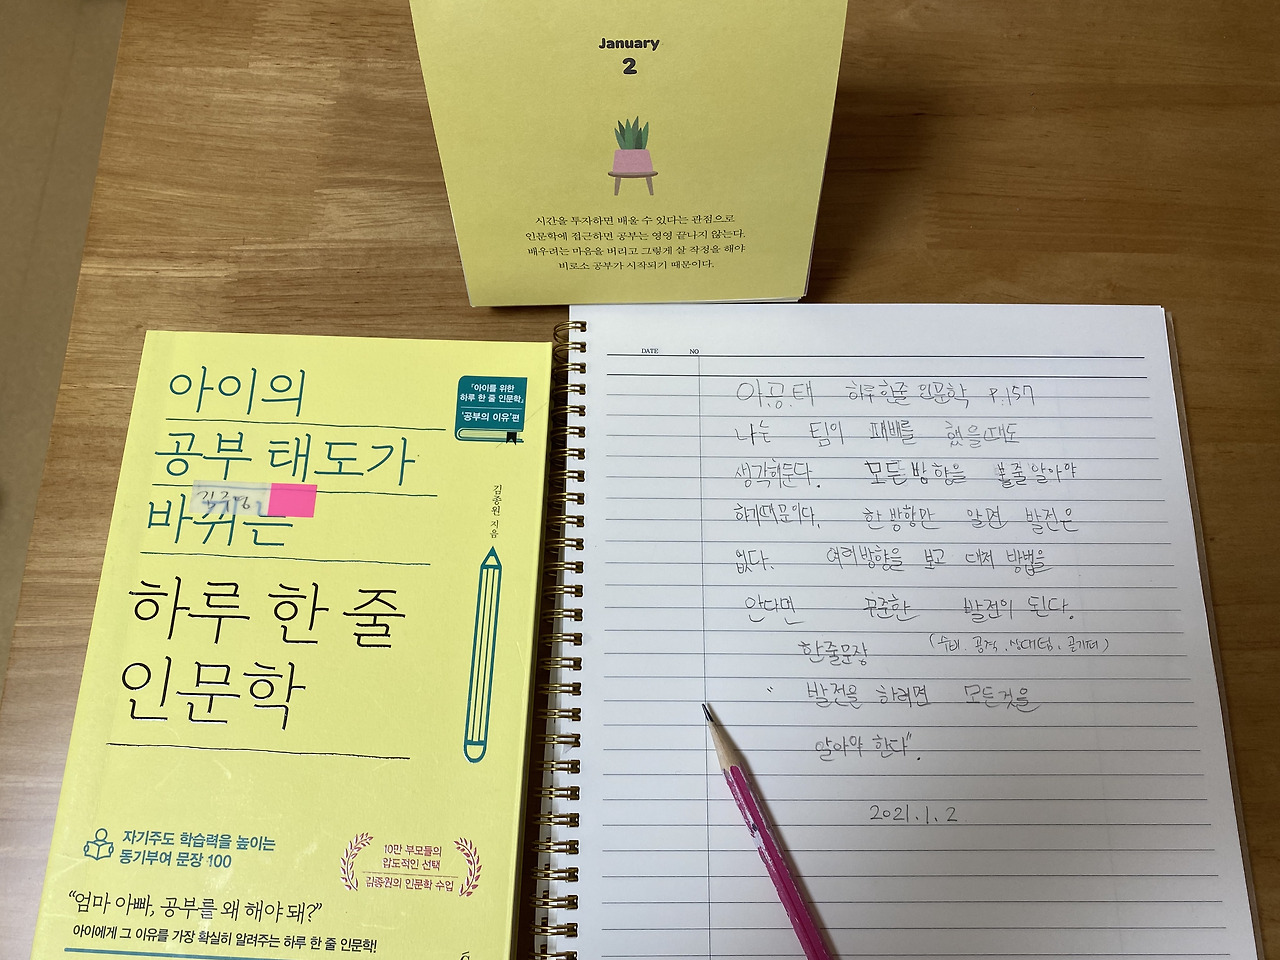 January
2
시간을 투자하면 배울 수 있다는 관점으로
인문학에 접근하면 공부는 영영 끝나지 않는다.
배우려는 마음을 버리고 그렇게 살 작정을 해야
비로소 공부가 시작되기 때문이다.
아이의
공부 태도가
바뀌는
하루 한 줄
인문학
『아이를 위한
하루 한 줄 인문학』
'공부의 이유'편
김종원 지음
자기주도 학습력을 높이는
동기부여 문장 100
10만 부모들의
압도적인 선택
김종원의 인문학 수업
“엄마 아빠, 공부를 왜 해야 돼?”
아이에게 그 이유를 가장 확실히 알려주는 하루 한 줄 인문학!
DATE NO
아.공.태 하루한줄 인문학 P.157
나는 팀이 패배를 했을때도
생각해둔다. 모든방향을 줄알아야
하기때문이다. 한 방향만 알면 발전은
없다. 여러방향을 보고 대처 방법을
안다면 꾸준한 발전이 된다.
한줄문장 (수비, 공격, 상대팀, 골키퍼)
“ 발전을 하려면 모든것을
알아야 한다”.
2021.1.2